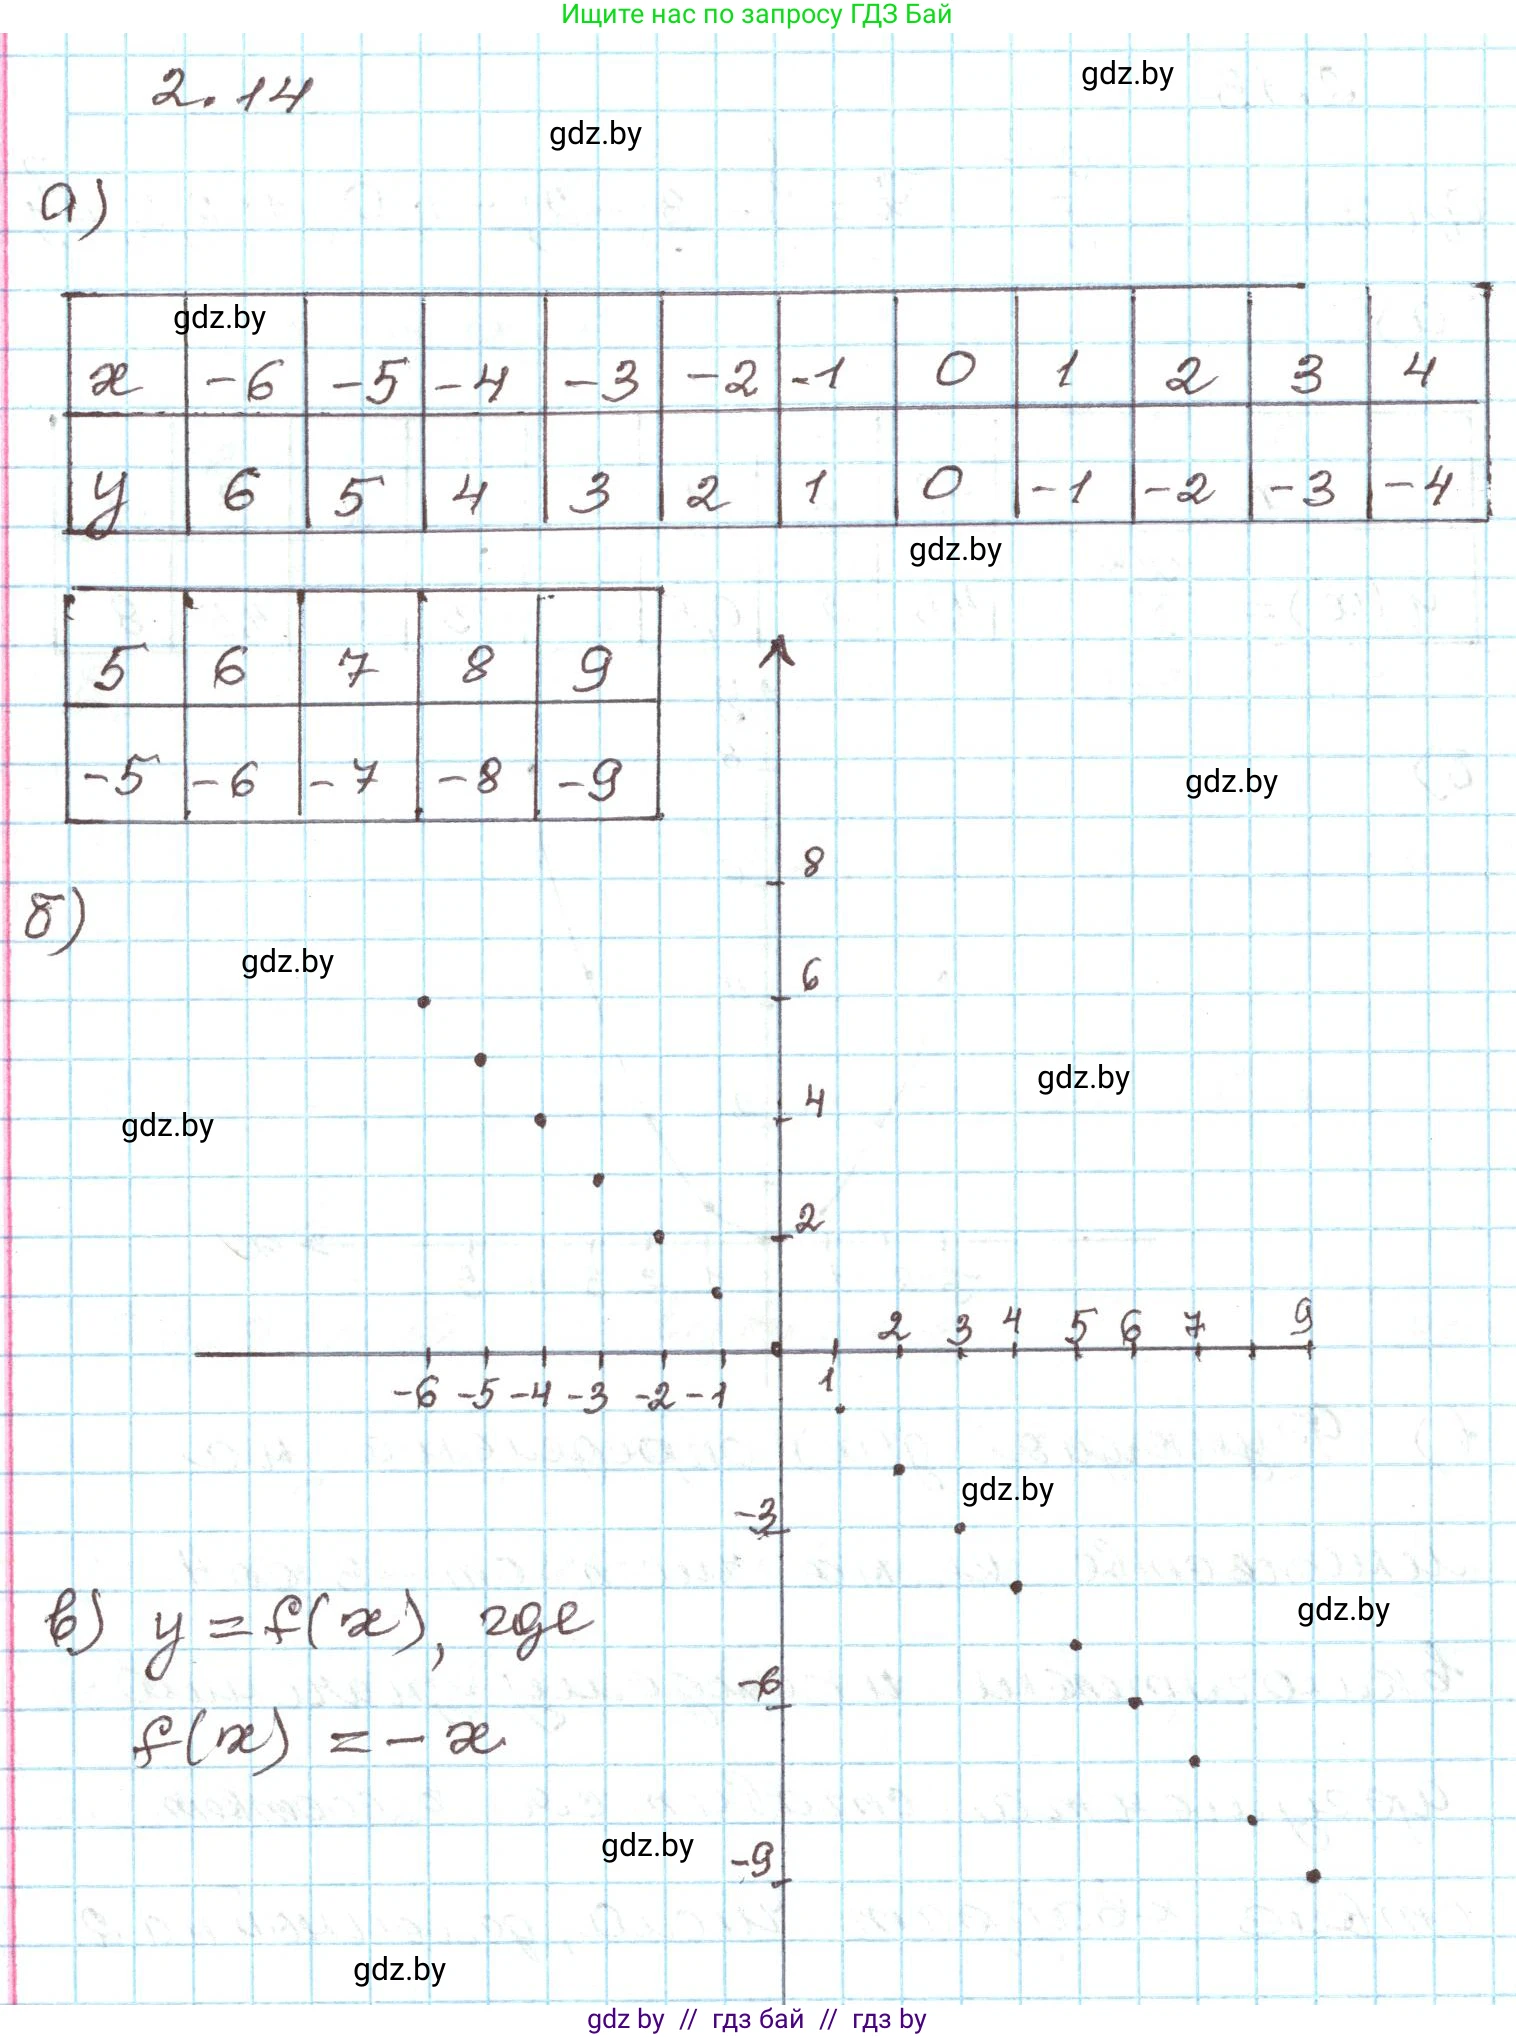 Ищите нас по запросу ГДЗ Бай
gdz.by
2.14
gdz.by
а)
gdz.by
x -6 -5 -4 -3 -2 -1 0 1 2 3 4
y 6 5 4 3 2 1 0 -1 -2 -3 -4
gdz.by
5 6 7 8 9
-5 -6 -7 -8 -9
gdz.by
8
б)
gdz.by
6
gdz.by
4
gdz.by
2
2 3 4 5 6 7 9
-6 -5 -4 -3 -2 -1 1
gdz.by
-3
в) y = f(x), где
gdz.by
-6
f(x) = -x
gdz.by
-9
gdz.by
gdz by // гдз бай // гдз by